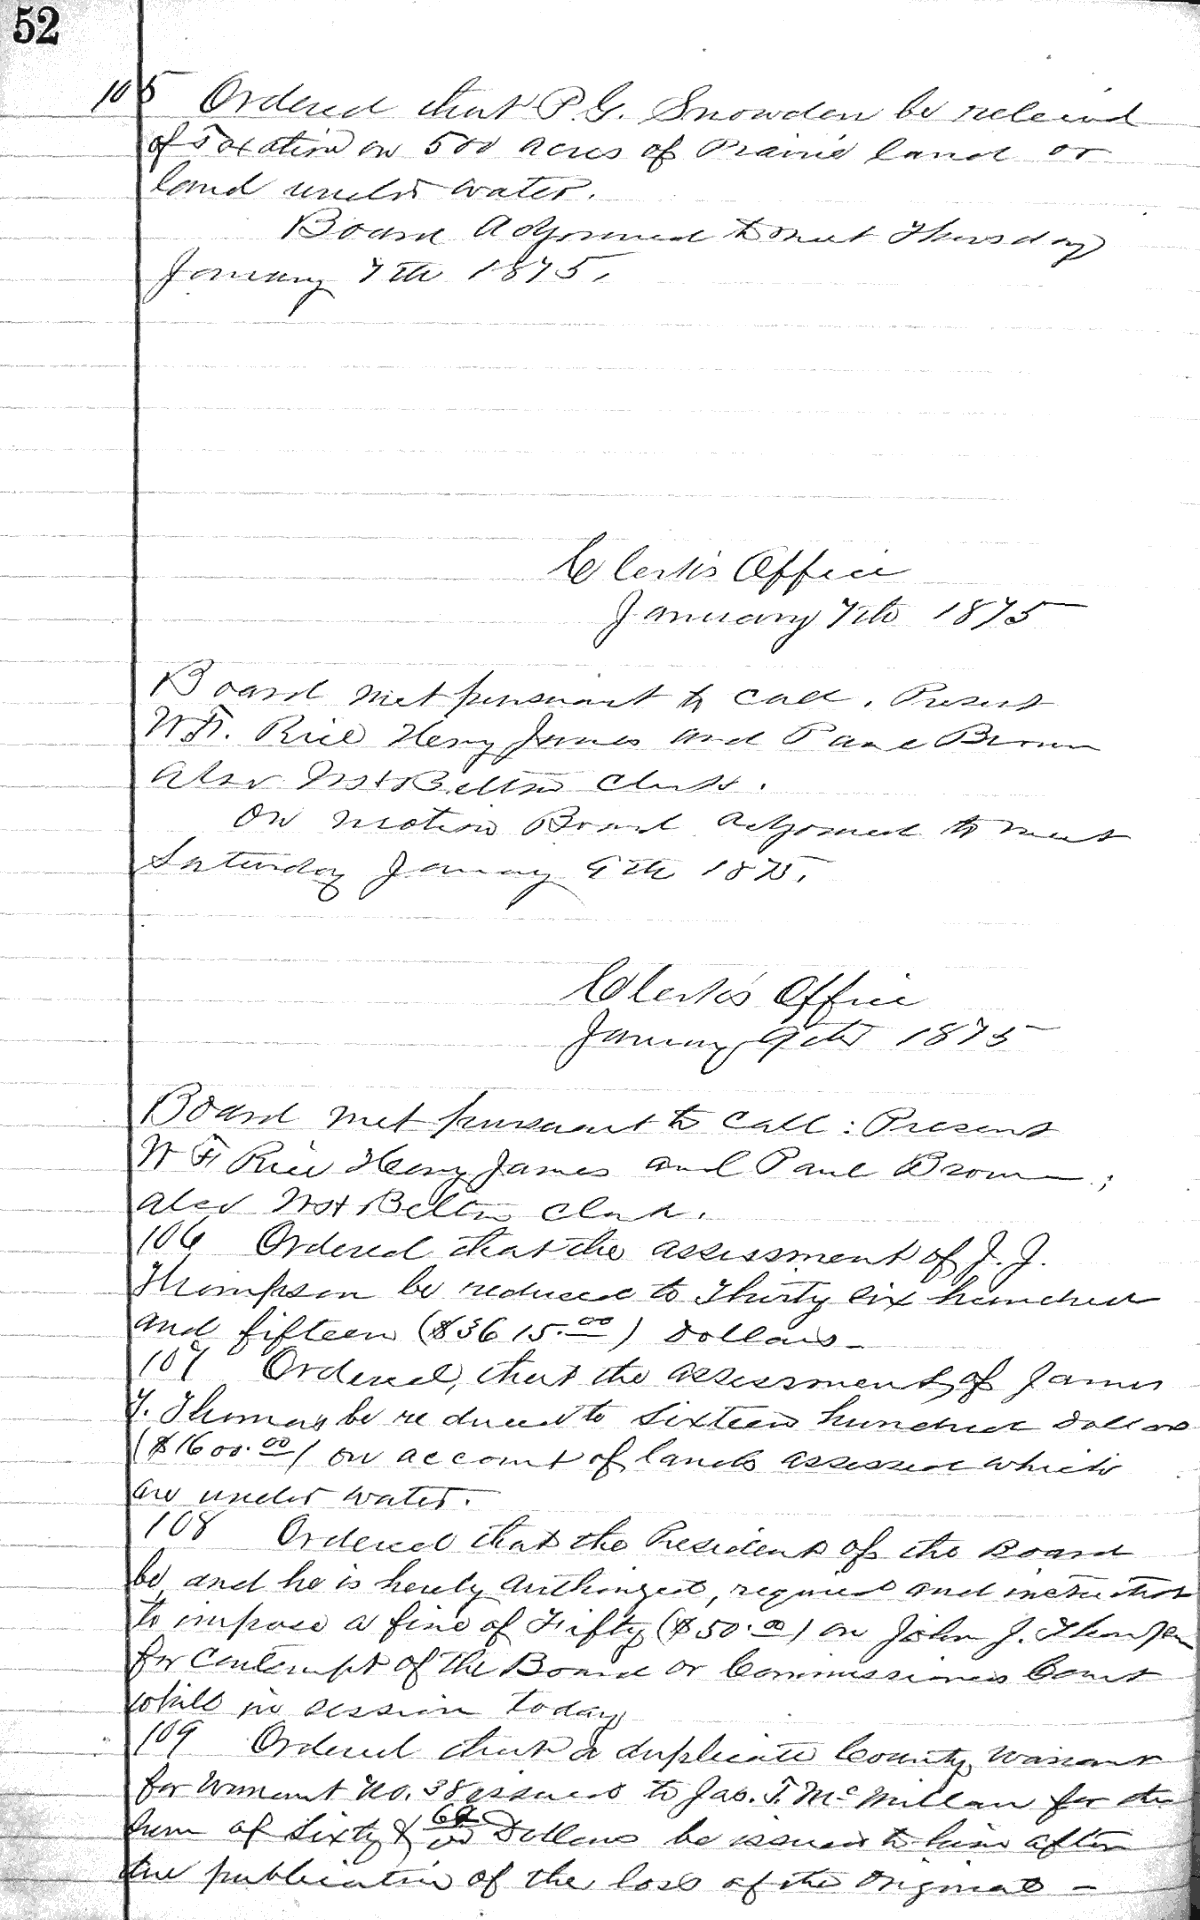 52
105 Ordered that P. G. Snowden be relieved
of Taxation on 500 acres of Prairie land or
land under water.
Board Adjourned to meet Thursday
January 7th 1875.
Clerk's Office
January 7th 1875
Board met pursuant to call. Present
W. F. Rice Henry James and Paul Brown
also W H Belton Clerk.
On motion Board adjourned to meet
Saturday January 9th 1875.
Clerk's Office
January 9th 1875
Board met pursuant to call: Present
W F Rice Henry James and Paul Brown;
also W H Belton Clerk.
106 Ordered that the assessment of J. J.
Thompson be reduced to Thirty six hundred
and fifteen ($3615.00) Dollars -
107 Ordered, that the assessment of James
T. Thomas be reduced to Sixteen hundred Dollars
($1600.00) on account of lands assessed which
are under water.
108 Ordered that the President of the Board
be, and he is hereby Authorized, required and instructed
to impose a fine of Fifty ($50.00) on John J. Thompson
for Contempt of the Board or Commissioners Court
while in session today
109 Ordered that a duplicate County Warrant
for Warrant No. 38 issued to Jas. T. McMillan for the
Sum of Sixty & Dollars be issued to him after
due publication of the loss of the Original -